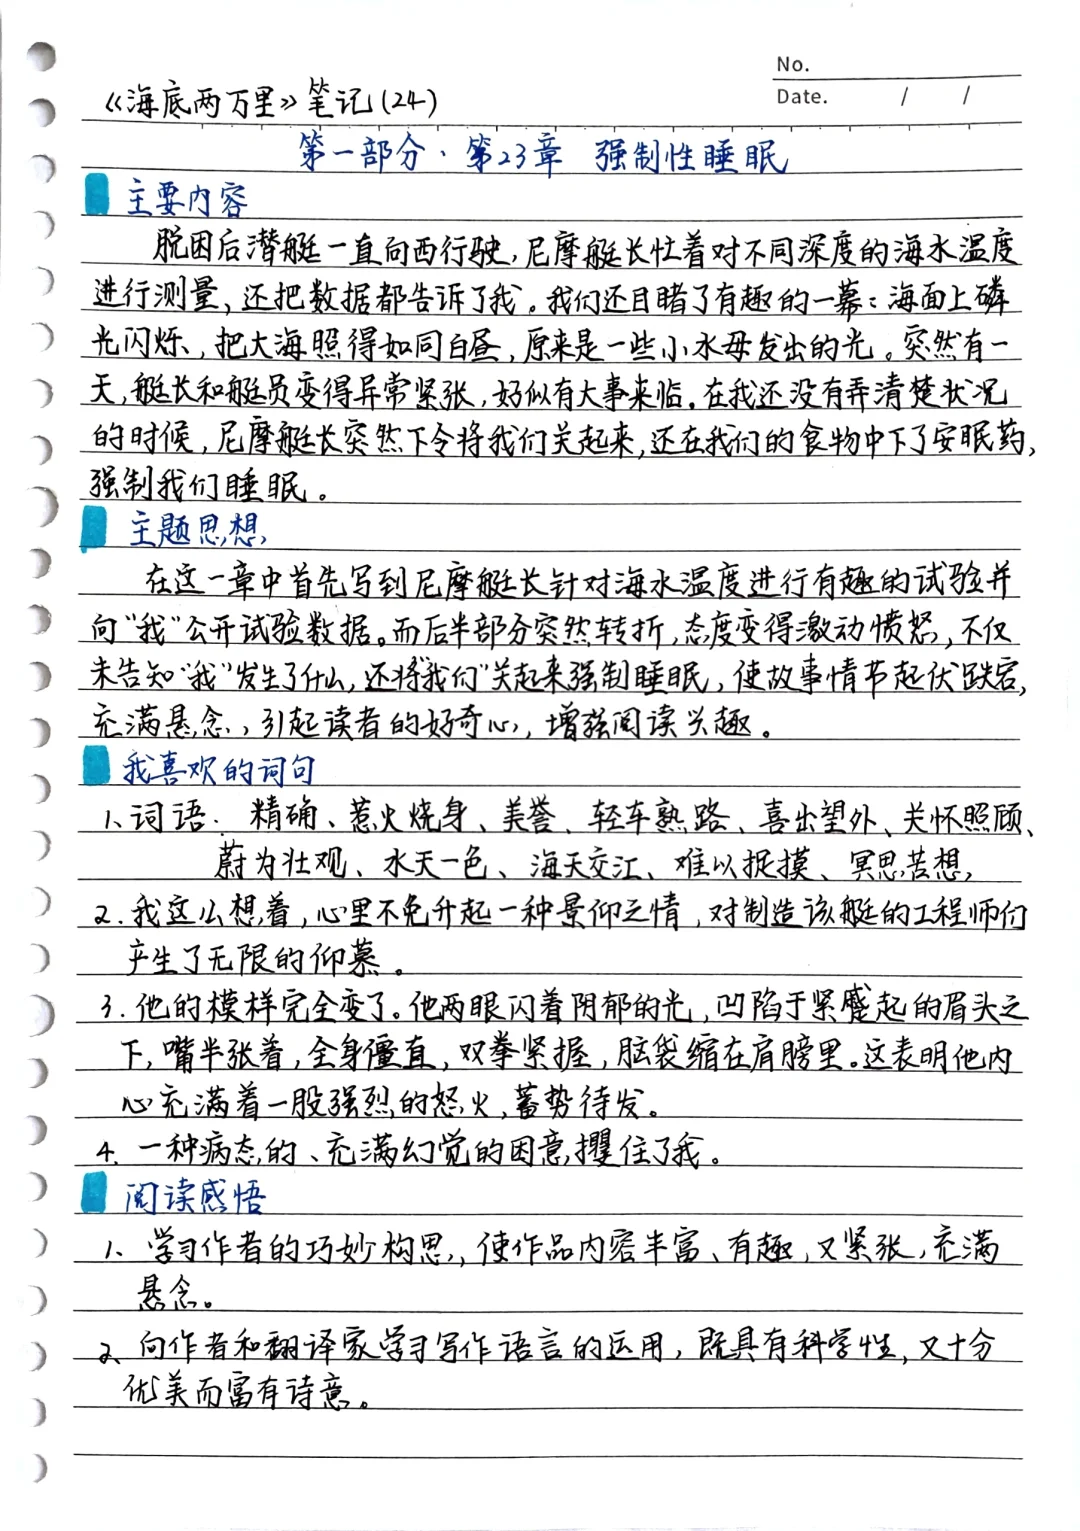 No.
Date. / /
《海底两万里》笔记(24)
第一部分·第23章 强制性睡眠
主要内容
脱困后潜艇一直向西行驶,尼摩艇长忙着对不同深度的海水温度
进行测量,还把数据都告诉了我。我们还目睹了有趣的一幕:海面上磷
光闪烁,把大海照得如同白昼,原来是一些小水母发出的光。突然有一
天,艇长和艇员变得异常紧张,好似有大事来临。在我还没有弄清楚状况
的时候,尼摩艇长突然下令将我们关起来,还在我们的食物中下了安眠药,
强制我们睡眠。
主题思想
在这一章中首先写到尼摩艇长针对海水温度进行有趣的试验并
向“我”公开试验数据。而后半部分突然转折,态度变得激动愤怒,不仅
未告知“我”发生了什么,还将“我们”关起来强制睡眠,使故事情节起伏跌宕,
充满悬念,引起读者的好奇心,增强阅读兴趣。
我喜欢的词句
1、词语: 精确、惹火烧身、美誉、轻车熟路、喜出望外、关怀照顾、
蔚为壮观、水天一色、海天交汇、难以捉摸、冥思苦想,
2.我这么想着,心里不免升起一种景仰之情,对制造该艇的工程师们
产生了无限的仰慕。
3.他的模样完全变了。他两眼闪着阴郁的光,凹陷于紧蹙起的眉头之
下,嘴半张着,全身僵直,双拳紧握,脑袋缩在肩膀里。这表明他内
心充满着一股强烈的怒火,蓄势待发。
4、一种病态的、充满幻觉的困意攫住了我。
阅读感悟
1、学习作者的巧妙构思,使作品内容丰富、有趣,又紧张,充满
悬念。
2、向作者和翻译家学习写作语言的运用,既具有科学性,又十分
优美而富有诗意。